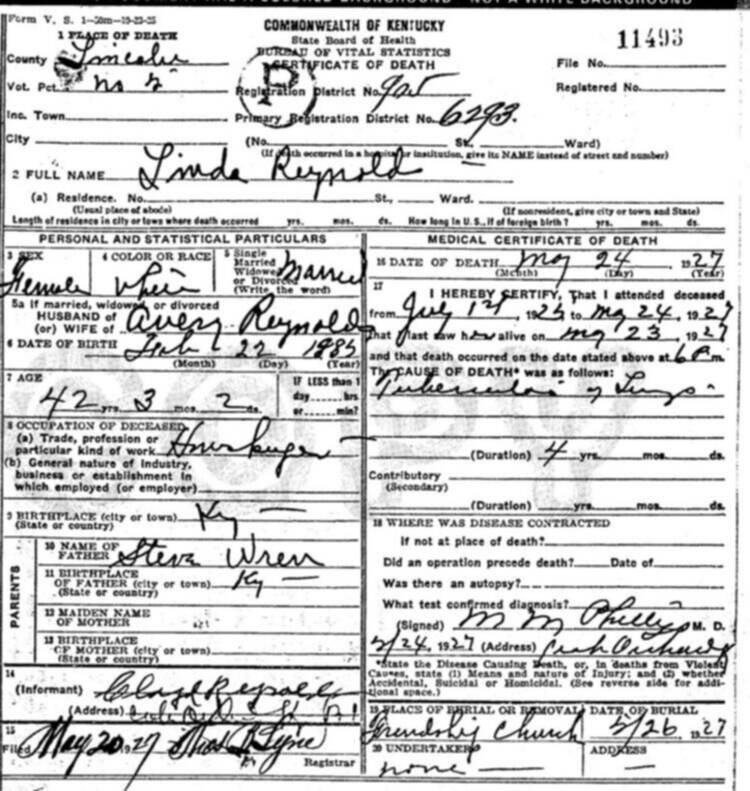 Form V. S. 1-50m-10-22-25
COMMONWEALTH OF KENTUCKY
State Board of Health
BUREAU OF VITAL STATISTICS
CERTIFICATE OF DEATH
1 PLACE OF DEATH
County Lincoln
Vot. Pct. No 5
Inc. Town
City
Registration District No. 905
Primary Registration District No. 6293.
11493
File No.
Registered No.
(No. St., Ward)
(If death occurred in a hospital or institution, give its NAME instead of street and number)
2 FULL NAME Linda Reynold
(a) Residence. No. St., Ward.
(Usual place of abode) (If nonresident, give city or town and State)
Length of residence in city or town where death occurred yrs. mos. ds. How long in U. S., if of foreign birth? yrs. mos. ds.
PERSONAL AND STATISTICAL PARTICULARS
3 SEX 4 COLOR OR RACE 5 Single Married Widowed or Divorced (Write the word)
Female White Married
5a If married, widowed, or divorced
HUSBAND of
(or) WIFE of Avery Reynolds
6 DATE OF BIRTH Feb 22 1885
(Month) (Day) (Year)
7 AGE IF LESS than 1
day hrs.
or min?
42 yrs. 3 mos. 2 ds.
8 OCCUPATION OF DECEASED
(a) Trade, profession or
particular kind of work
(b) General nature of industry,
business or establishment in
which employed (or employer)
9 BIRTHPLACE (city or town) Ky
(State or country)
PARENTS
10 NAME OF
FATHER Steve Wren
11 BIRTHPLACE
OF FATHER (city or town) Ky
(State or country)
12 MAIDEN NAME
OF MOTHER
13 BIRTHPLACE
OF MOTHER (city or town)
(State or country)
14
(Informant) Cloyd Reynolds
(Address)
15
Filed May 20, 1927
Registrar
MEDICAL CERTIFICATE OF DEATH
16 DATE OF DEATH May 24 1927
(Month) (Day) (Year)
17
I HEREBY CERTIFY, That I attended deceased
from July 1st, 1925 to May 24, 1927
that I last saw her alive on May 23, 1927
and that death occurred on the date stated above at 6 P.m.
The CAUSE OF DEATH* was as follows:
Tuberculosis of Lungs
(Duration) 4 yrs. mos. ds.
Contributory
(Secondary)
(Duration) yrs. mos. ds.
18 WHERE WAS DISEASE CONTRACTED
If not at place of death?
Did an operation precede death? Date of
Was there an autopsy?
What test confirmed diagnosis?
(Signed) M M Phillips M. D.
5/24, 1927 (Address) Crab Orchard
*State the Disease Causing Death, or, in deaths from Violent
Causes, state (1) Means and nature of Injury; and (2) whether
Accidental, Suicidal or Homicidal. (See reverse side for addi-
tional space.)
19 PLACE OF BURIAL OR REMOVAL DATE OF BURIAL
Friendship Church 5/26, 1927
20 UNDERTAKER ADDRESS
none
COPY